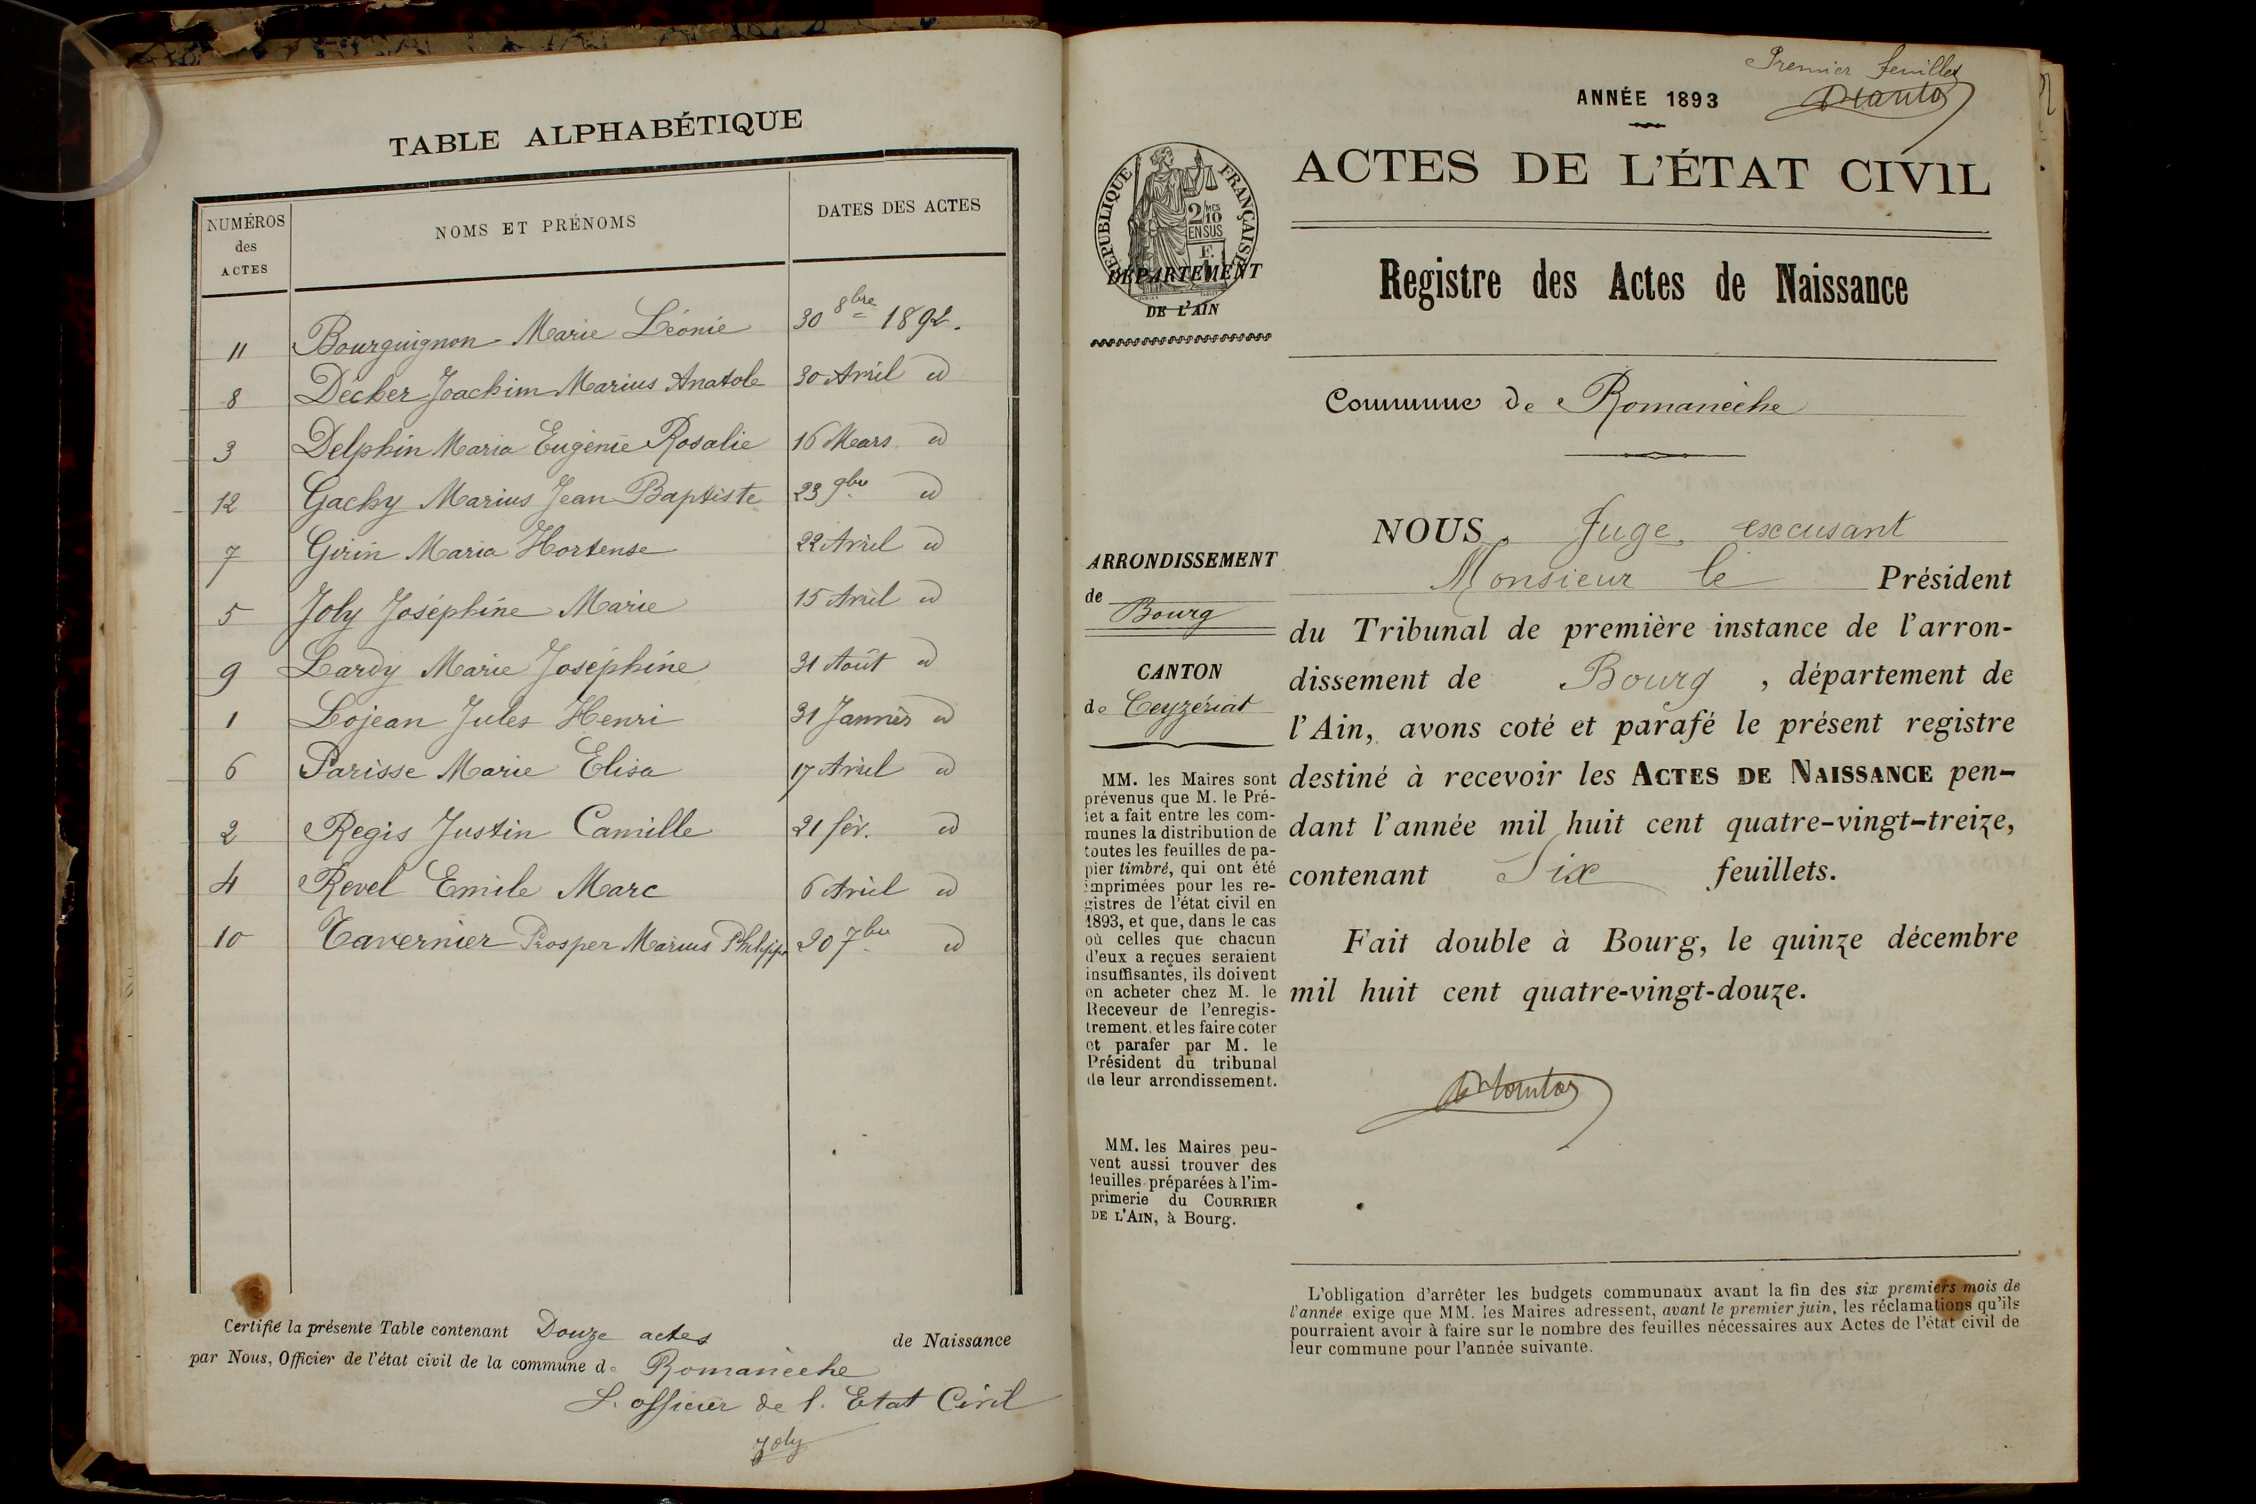 TABLE ALPHABÉTIQUE
NUMÉROS des ACTES NOMS ET PRÉNOMS DATES DES ACTES
11 Bourguignon Marie Léonie 30 8bre 1892.
8 Décher Joachim Marius Anatole 30 Avril id
3 Delphin Maria Eugénie Rosalie 16 Mars id
12 Gachy Marius Jean Baptiste 23 9bre id
7 Girin Maria Hortense 22 Avril id
5 Joly Joséphine Marie 15 Avril id
9 Lardy Marie Joséphine 31 Août id
1 Lojean Jules Henri 31 Janvier id
6 Parisse Marie Elisa 17 Avril id
2 Regis Justin Camille 21 fév. id
4 Revel Emile Marc 6 Avril id
10 Tavernier Prosper Marius Philippe 20 7bre id
Certifié la présente Table contenant Douze actes de Naissance
par Nous, Officier de l'état civil de la commune de Romanèche
L. officier de l. Etat Civil
Joly
Premier feuillet
ANNÉE 1893
ACTES DE L'ÉTAT CIVIL
RÉPUBLIQUE FRANÇAISE
2 MES
10
EN SUS
DÉPARTEMENT
DE L'AIN
Registre des Actes de Naissance
Commune de Romanèche
ARRONDISSEMENT
de Bourg
CANTON
de Ceyzériat
MM. les Maires sont
prévenus que M. le Pré-
fet a fait entre les com-
munes la distribution de
toutes les feuilles de pa-
pier timbré, qui ont été
imprimées pour les re-
gistres de l'état civil en
1893, et que, dans le cas
où celles que chacun
d'eux a reçues seraient
insuffisantes, ils doivent
en acheter chez M. le
Receveur de l'enregis-
trement, et les faire coter
et parafer par M. le
Président du tribunal
de leur arrondissement.
MM. les Maires peu-
vent aussi trouver des
feuilles préparées à l'im-
primerie du COURRIER
DE L'AIN, à Bourg.
NOUS, Juge, excusant
Monsieur le Président
du Tribunal de première instance de l'arron-
dissement de Bourg, département de
l'Ain, avons coté et parafé le présent registre
destiné à recevoir les ACTES DE NAISSANCE pen-
dant l'année mil huit cent quatre-vingt-treize,
contenant Six feuillets.
Fait double à Bourg, le quinze décembre
mil huit cent quatre-vingt-douze.
L'obligation d'arrêter les budgets communaux avant la fin des six premiers mois de
l'année exige que MM. les Maires adressent, avant le premier juin, les réclamations qu'ils
pourraient avoir à faire sur le nombre des feuilles nécessaires aux Actes de l'état civil de
leur commune pour l'année suivante.